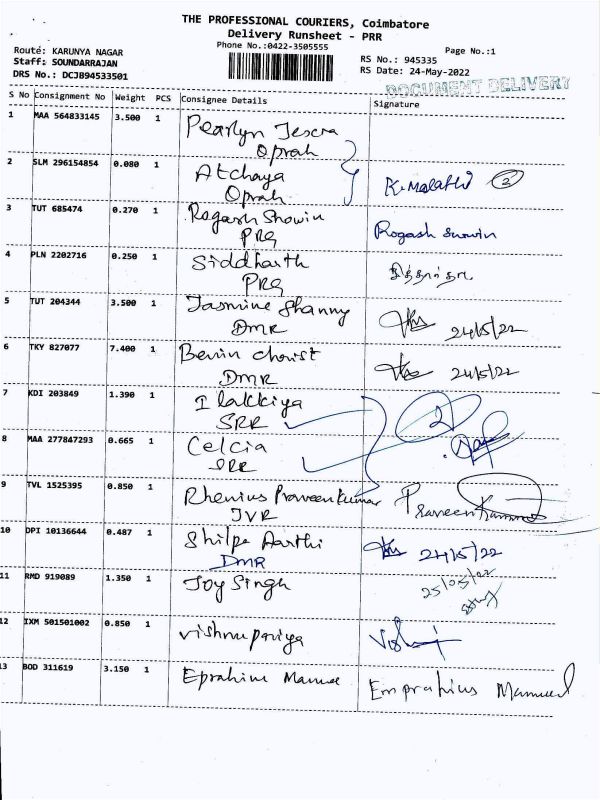 THE PROFESSIONAL COURIERS, Coimbatore
Delivery Runsheet - PRR
Phone No.:0422-3505555
Page No.:1
Route: KARUNYA NAGAR
Staff: SOUNDARRAJAN
DRS No.: DCJB94533501
RS No.: 945335
RS Date: 24-May-2022
DOCUMENT DELIVERY
S No Consignment No Weight PCS Consignee Details Signature
1 MAA 564833145 3.500 1 Pearlyn Jescra
Oprah
2 SLM 296154854 0.080 1 Atchaya
Oprah K. Malathi 2
3 TUT 685474 0.270 1 Rogash Showin
PRG Rogash Showin
4 PLN 2202716 0.250 1 Siddharth
PRG சித்தார்த்
5 TUT 204344 3.500 1 Jasmine Shanny
DMR 24/5/22
6 TKY 827077 7.400 1 Benin Chorist
DMR 24/5/22
7 KDI 203849 1.390 1 Ilakkiya
SRR 2
8 MAA 277847293 0.665 1 Celcia
SRR
9 TVL 1525395 0.850 1 Rhenius Praveenkumar
JVR Praveenkumar
10 DPI 10136644 0.487 1 Shilpa Aarthi
DMR 24/5/22
11 RMD 919089 1.350 1 Joy Singh 25/05/22
12 IXM 501501002 0.850 1 Vishnupriya
13 BOD 311619 3.150 1 Eprahim Manue Emprahius Manuel